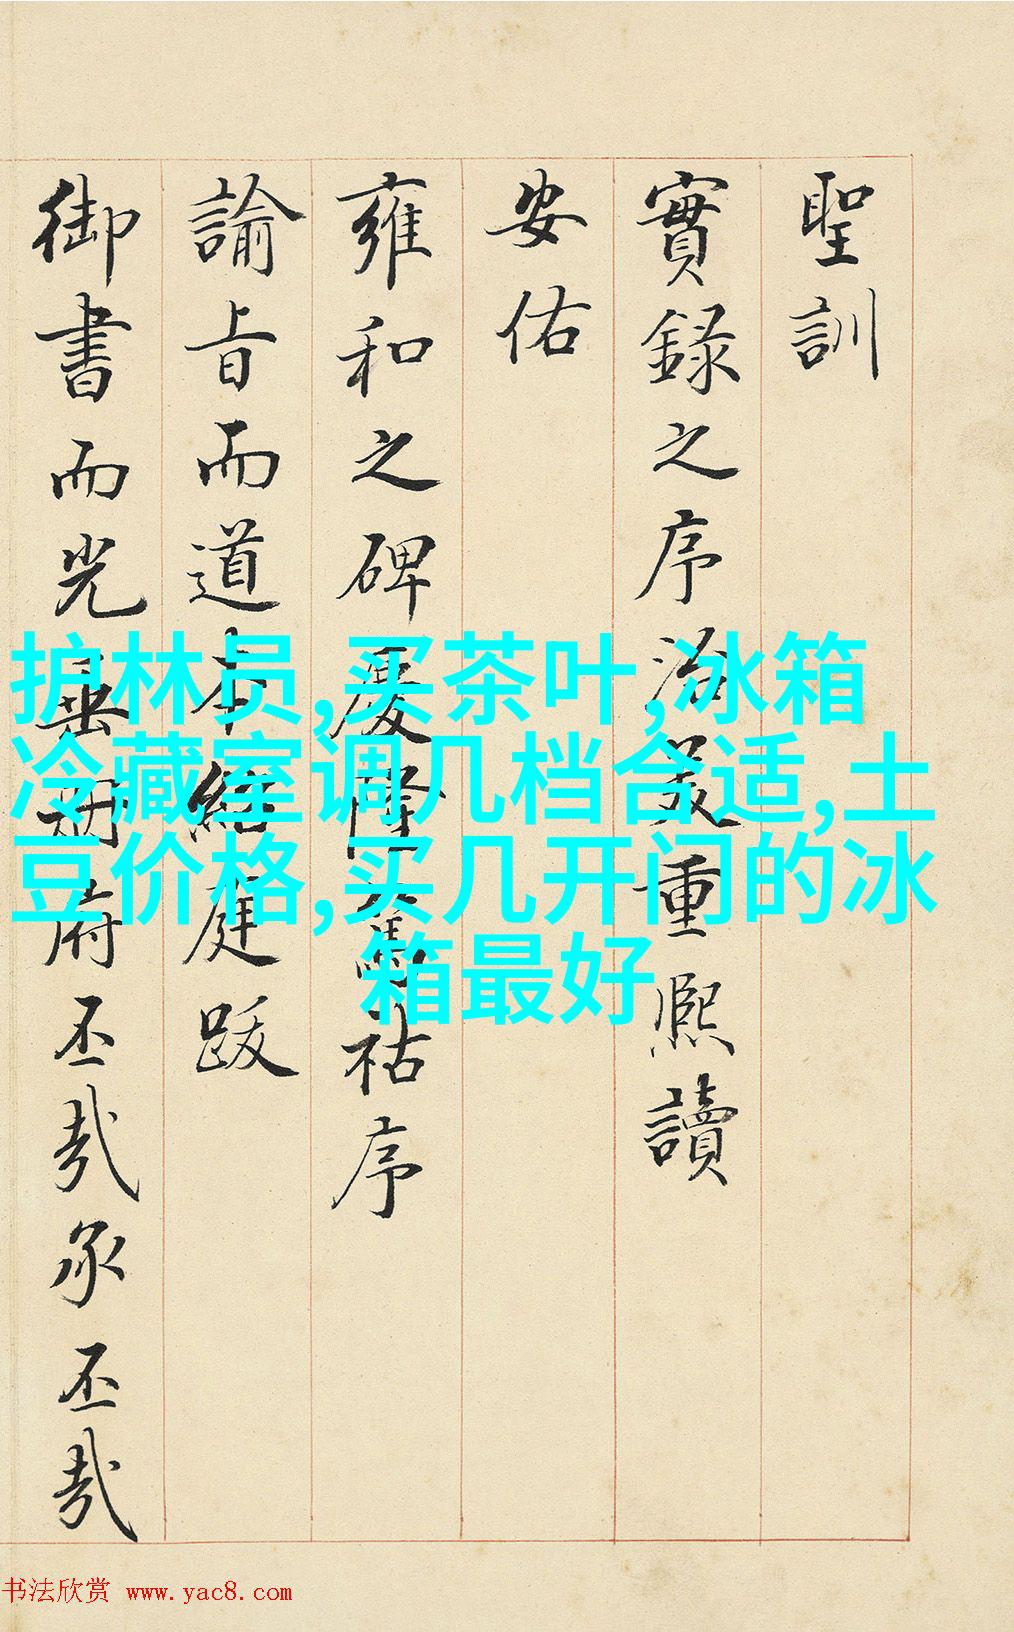 聖訓
實錄之序洽美重熙讀
安佑
雍和之碑慶隆篤祜序
諭旨而道本經庭跋
御書而光垂冊府丕哉承丕哉
护林员,买茶叶,冰箱
冷藏室调几档合适,土
豆价格,买几开门的冰
箱最好
书法欣赏 www.yac8.com